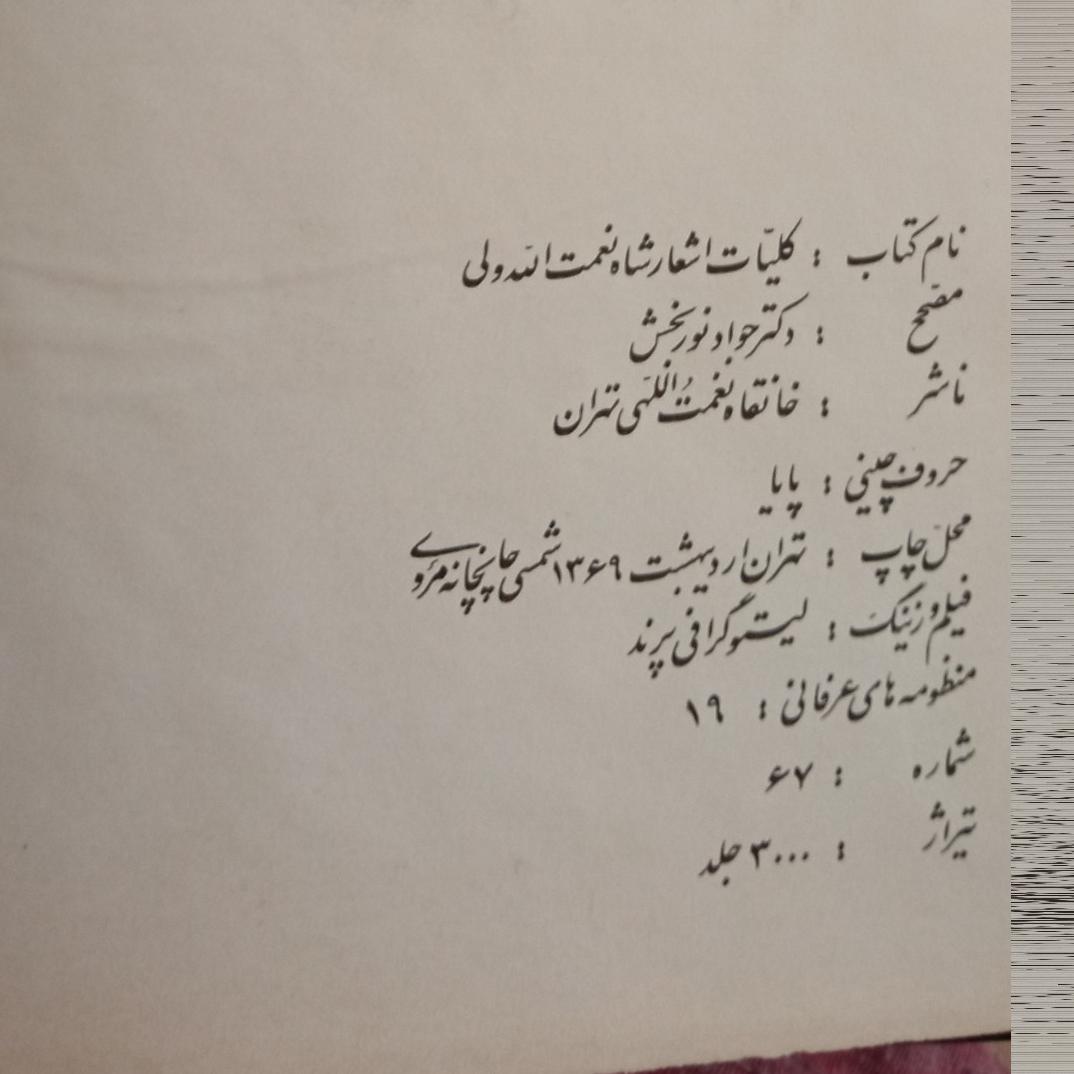 نام کتاب : کلیّات اشعار شاه نعمت الله ولی
مصّحح : دکتر جواد نوربخش
ناشر : خانقاه نعمت اللّهی تهران
حروف چینی : پایا
محلّ چاپ : تهران اردیبهشت ۱۳۶۹ شمسی چاپخانه مروی
فیلم و زینک : لیتوگرافی پرند
منظومه های عرفانی : ۱۹
شماره : ۶۷
تیراژ : ۳۰۰۰ جلد